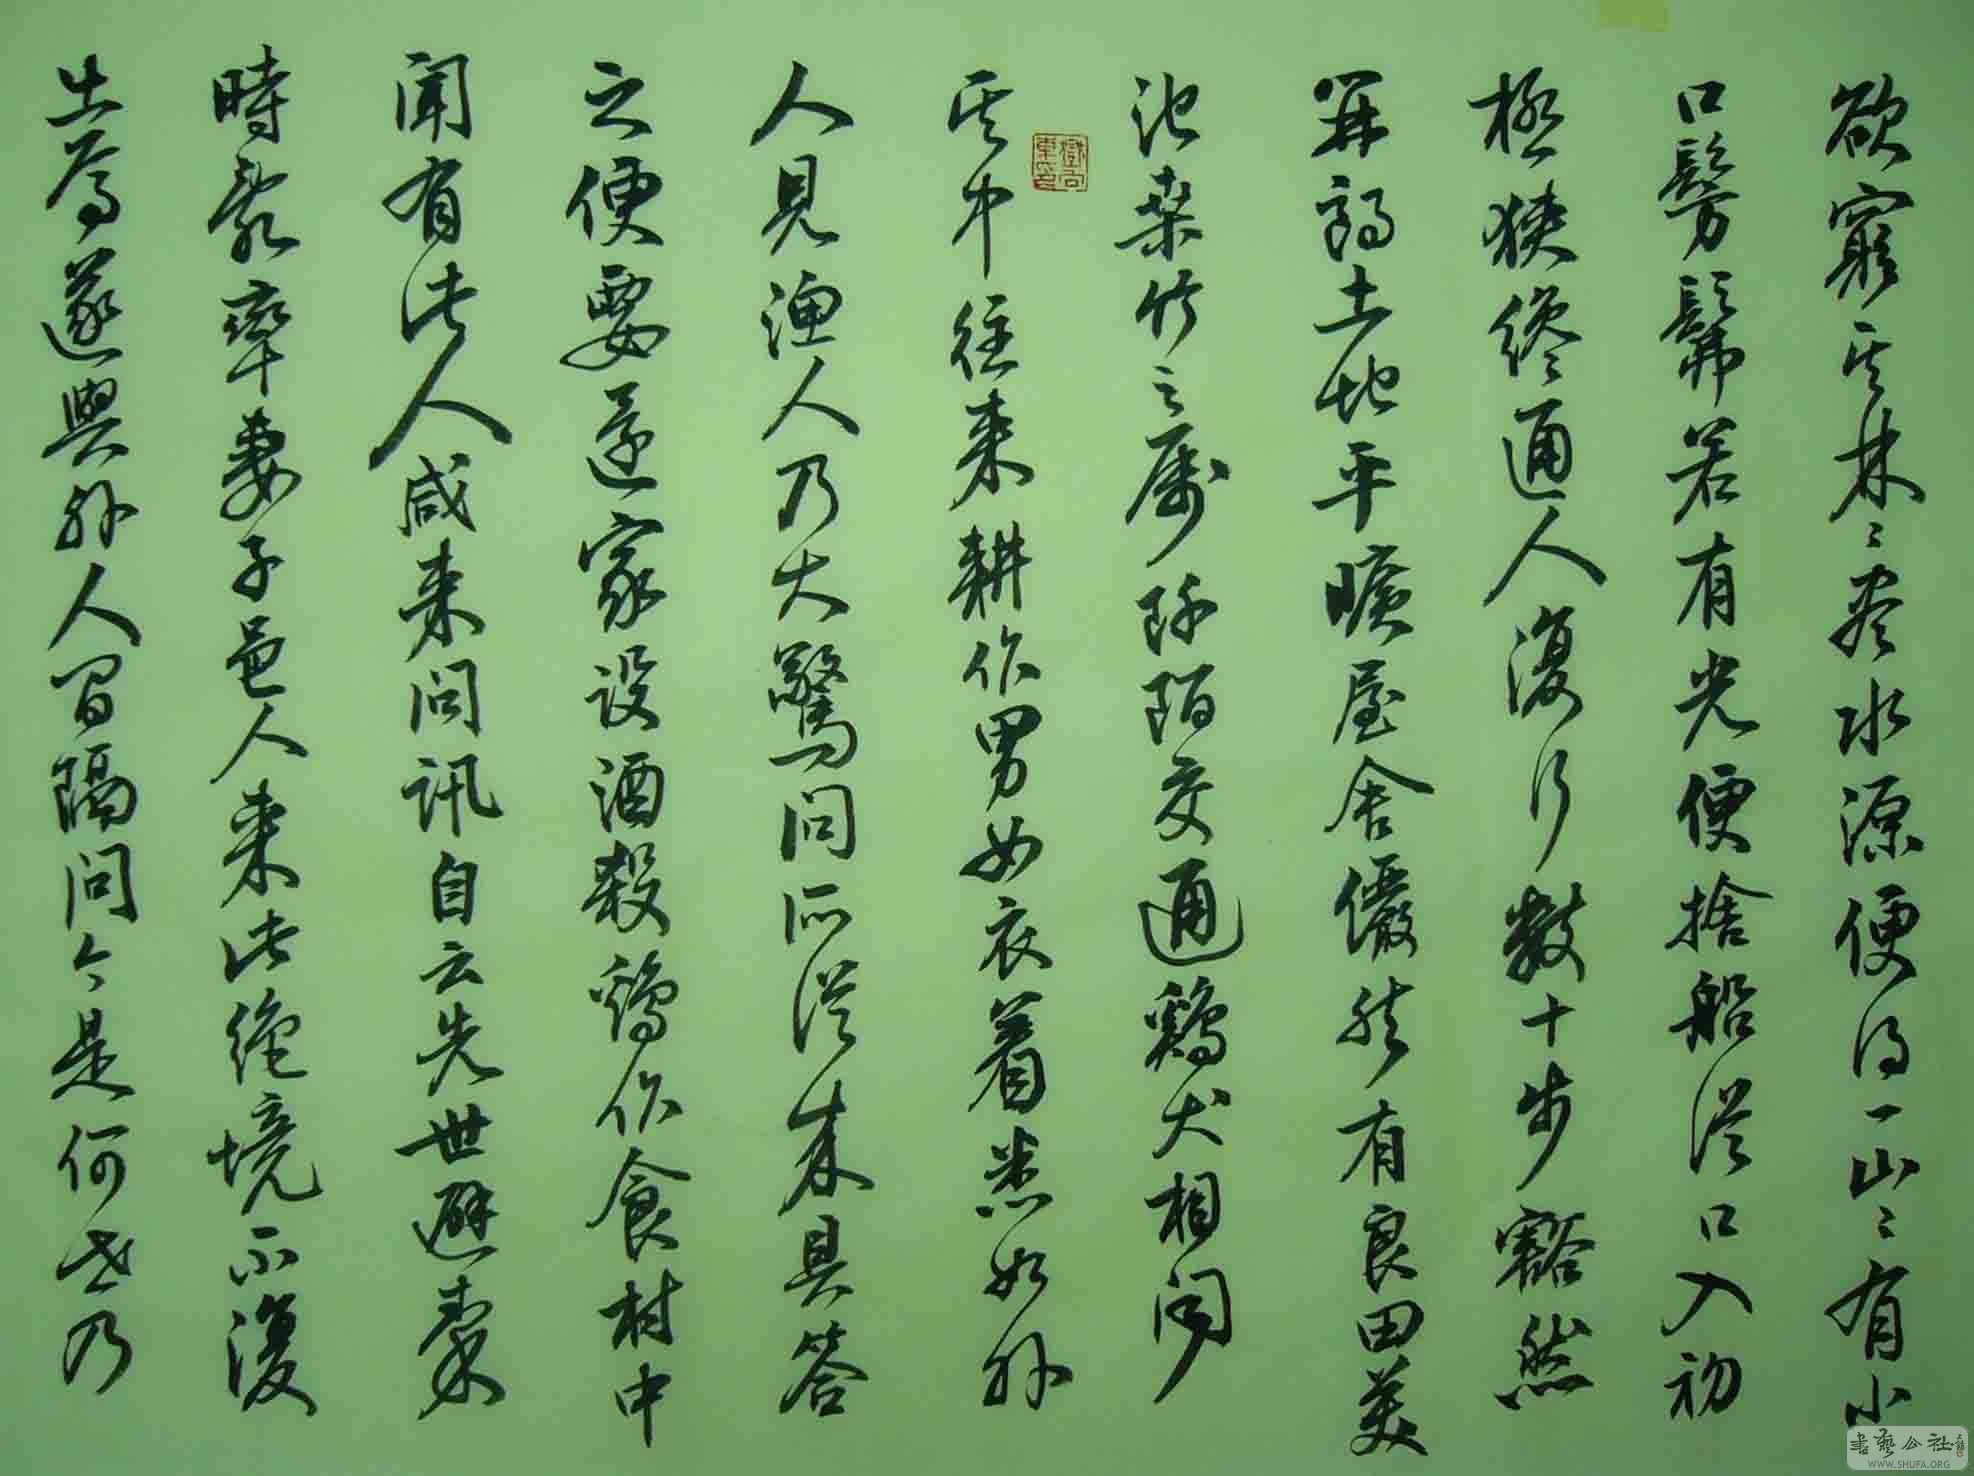 欲窮其林〻盡水源便得一山〻有小
口髣髴若有光便捨船從口入初
極狹纔通人復行數十步豁然
開朗土地平曠屋舍儼然有良田美
池桑竹之屬阡陌交通鷄犬相聞
其中往來耕作男女衣着悉如外
人見漁人乃大驚問所從來具答
之便要還家設酒殺鷄作食村中
聞有此人咸來問訊自云先世避秦
時亂率妻子邑人來此絕境不復
出焉遂與外人間隔問今是何世乃
書藝公社
WWW.SHUFA.ORG